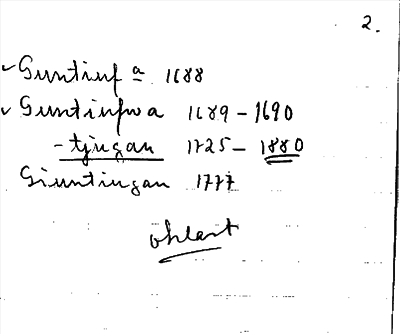 2.
Guntiuf a 1688
Guntinfwa 1689 - 1690
- tjugan 1725 - 1880
Giuntiugan 1777
oklart